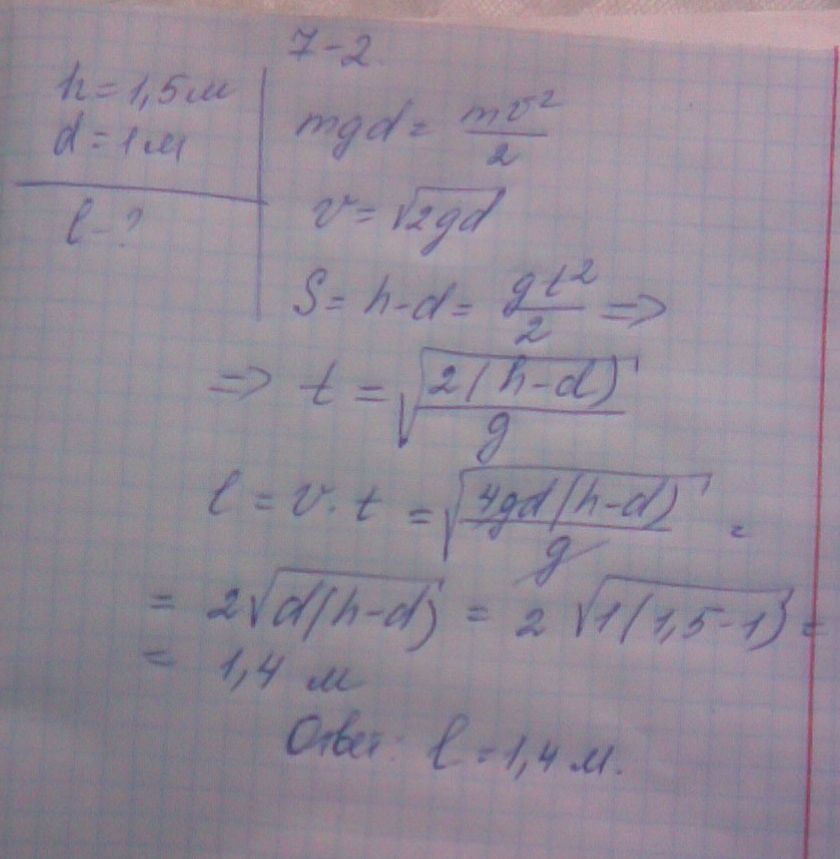 7-2.
h = 1,5 м
d = 1 м
l - ?
mgd = mv²/2
v = √2gd
S = h-d = gt²/2 =>
=> t = √(2(h-d)/g)
l = v · t = √(4gd(h-d)/g) =
= 2√d(h-d) = 2 √1(1,5-1) =
= 1,4 м
Ответ: l = 1,4 м.